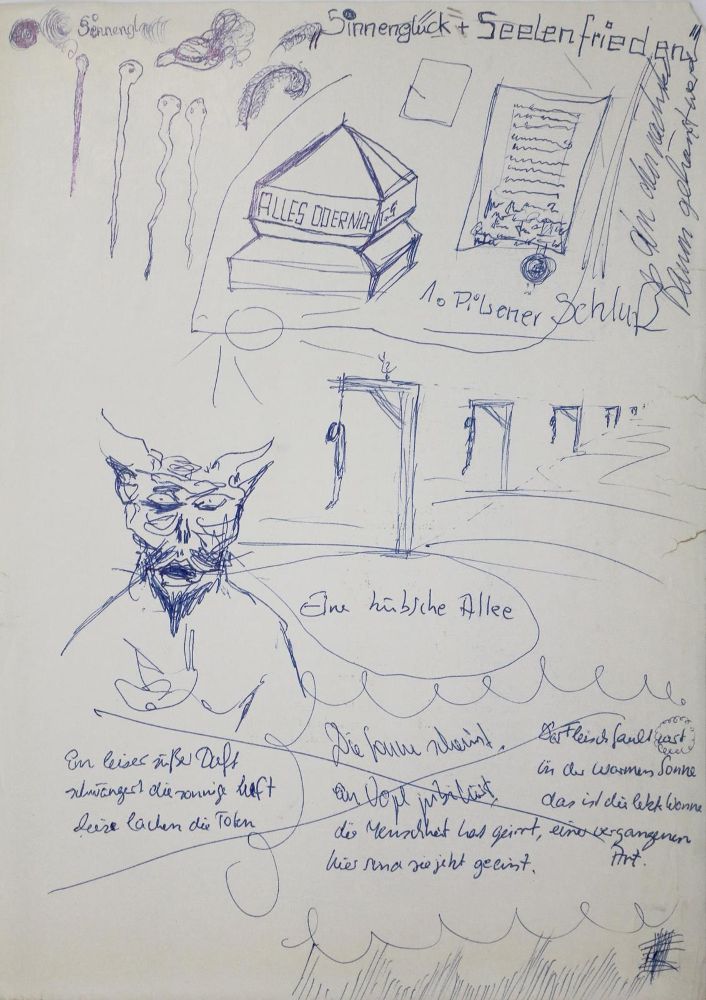 Sinnengl
"Sinnenglück + Seelenfrieden"
ALLES ODER NICHTS
1. Pilsener Schluß
an den nächsten
daran gehängt wird
Eine hübsche Allee
Ein leiser süßer Duft
schwängert die sonnige Luft
leise lachen die Toten
Die Sonne scheint.
Ein Vogel jubiliert,
die Menschheit hat geirrt,
hier sind sie jetzt geeint.
Fleisch fault
in der warmen Sonne
das ist die letzte Wonne
einer vergangenen
Art.